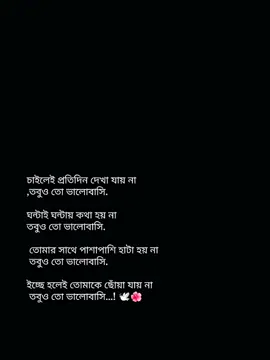 চাইলেই প্রতিদিন দেখা যায় না
,তবুও তো ভালোবাসি.
ঘন্টাই ঘন্টায় কথা হয় না
তবুও তো ভালোবাসি.
তোমার সাথে পাশাপাশি হাটা হয় না
তবুও তো ভালোবাসি.
ইচ্ছে হলেই তোমাকে ছোঁয়া যায় না
তবুও তো ভালোবাসি...! 🕊️🌺